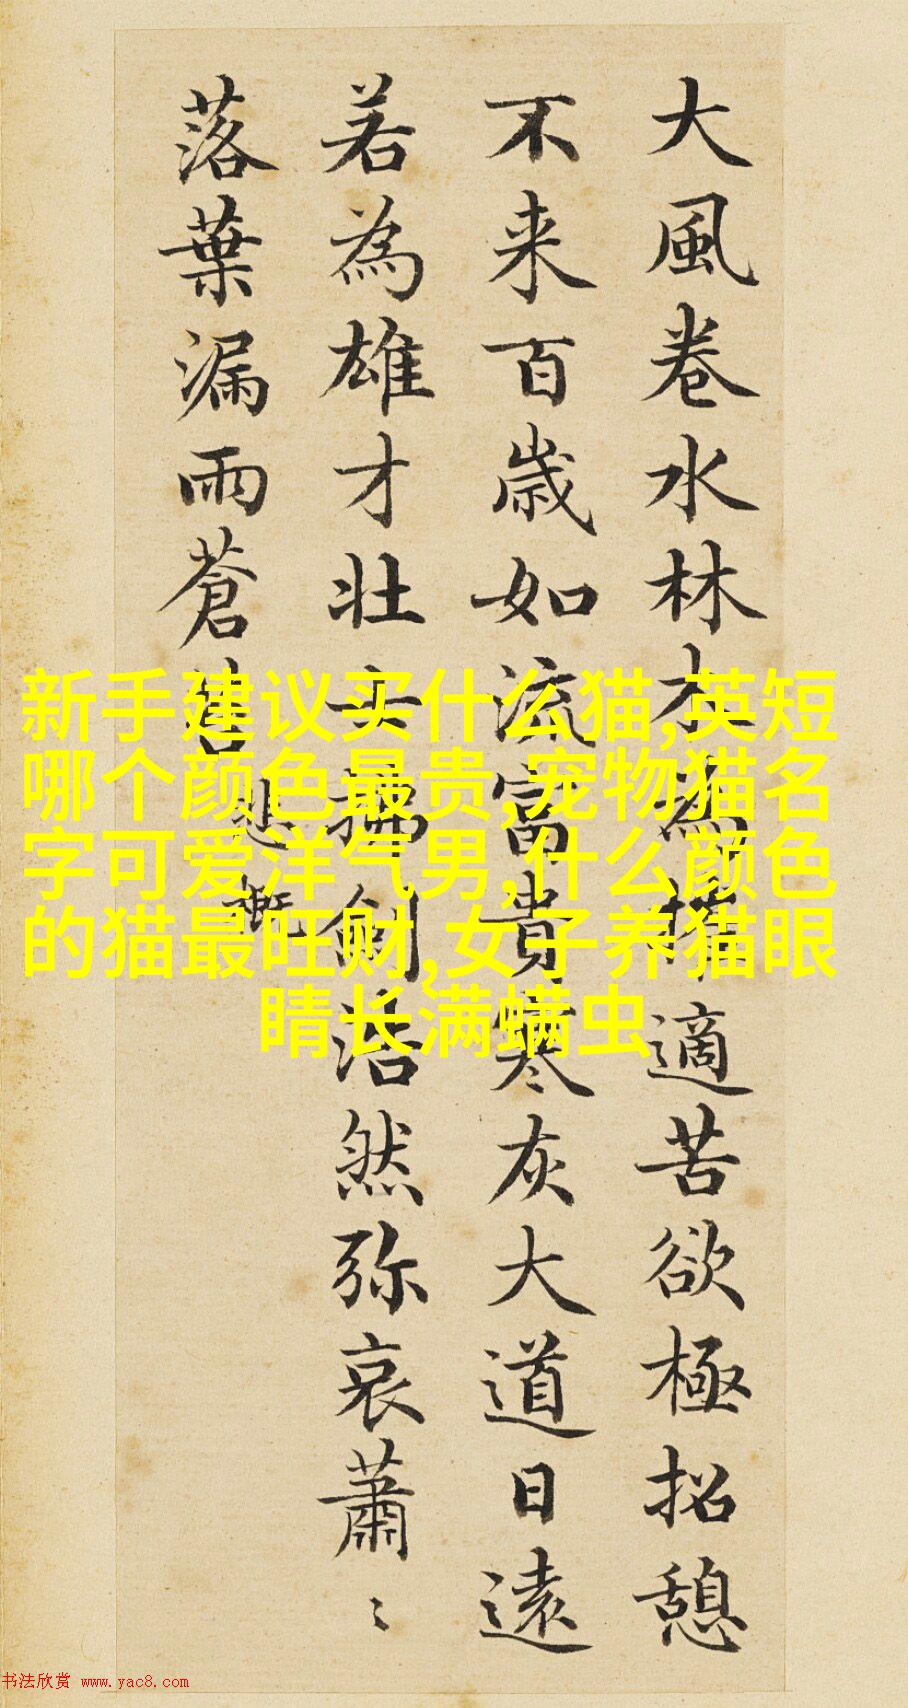 大風卷水林木為摧適苦欲極招憩
不来百歳如流富貴寒灰大道日遠
若為雄才壮士拂劍浩然弥哀蕭〻
落葉漏雨蒼苔
悲慨
新手建议买什么猫,英短
哪个颜色最贵,宠物猫名
字可爱洋气男,什么颜色
的猫最旺财,女子养猫眼
睛长满螨虫
书法欣赏 www.yac8.com